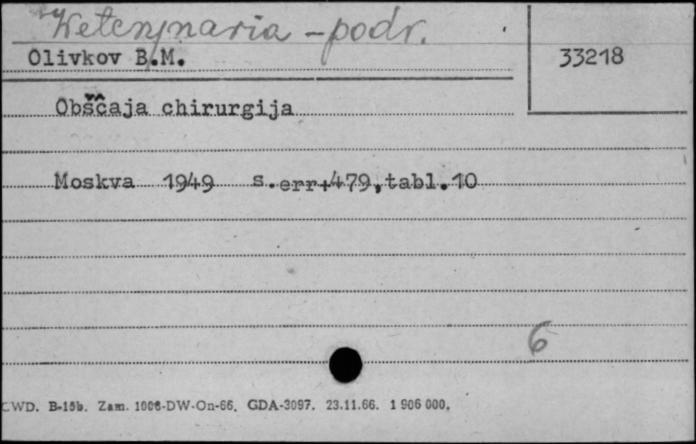 Weterynaria - podr.
Olivkov B.M.
33218
Obščaja chirurgija
Moskva 1949 s.err+479,tabl.10
6
CWD. B-15b. Zam. 1006-DW-On-66. GDA-3097. 23.11.66. 1 906 000.